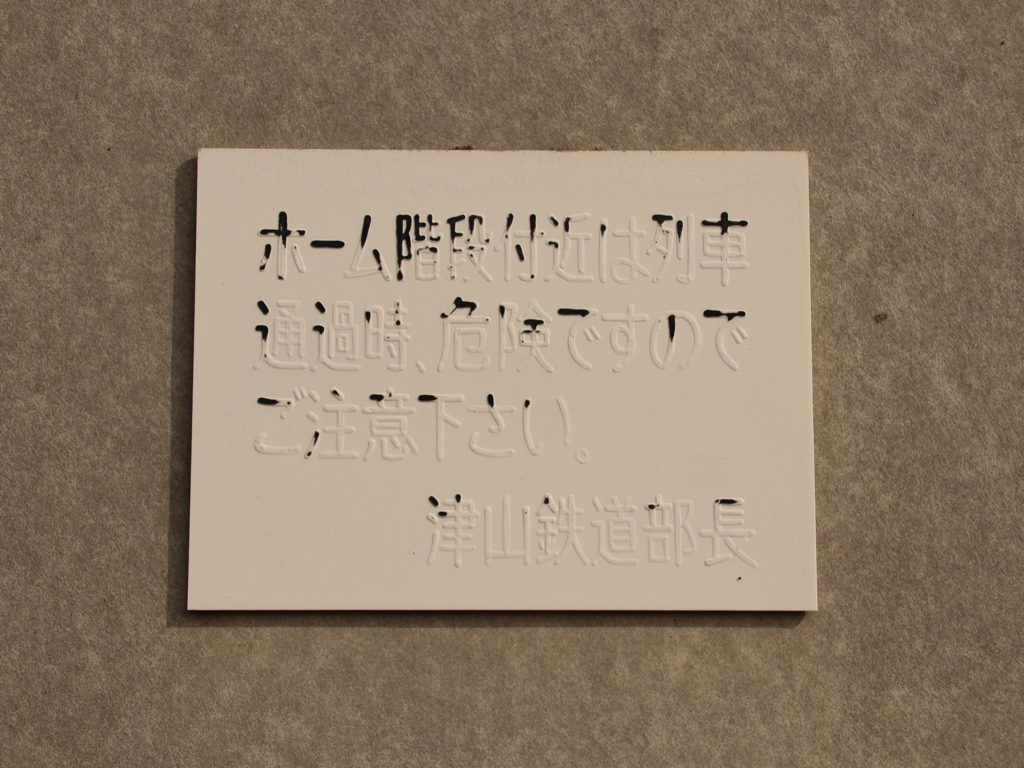 ホーム階段付近は列車
通過時、危険ですので
ご注意下さい。
津山鉄道部長